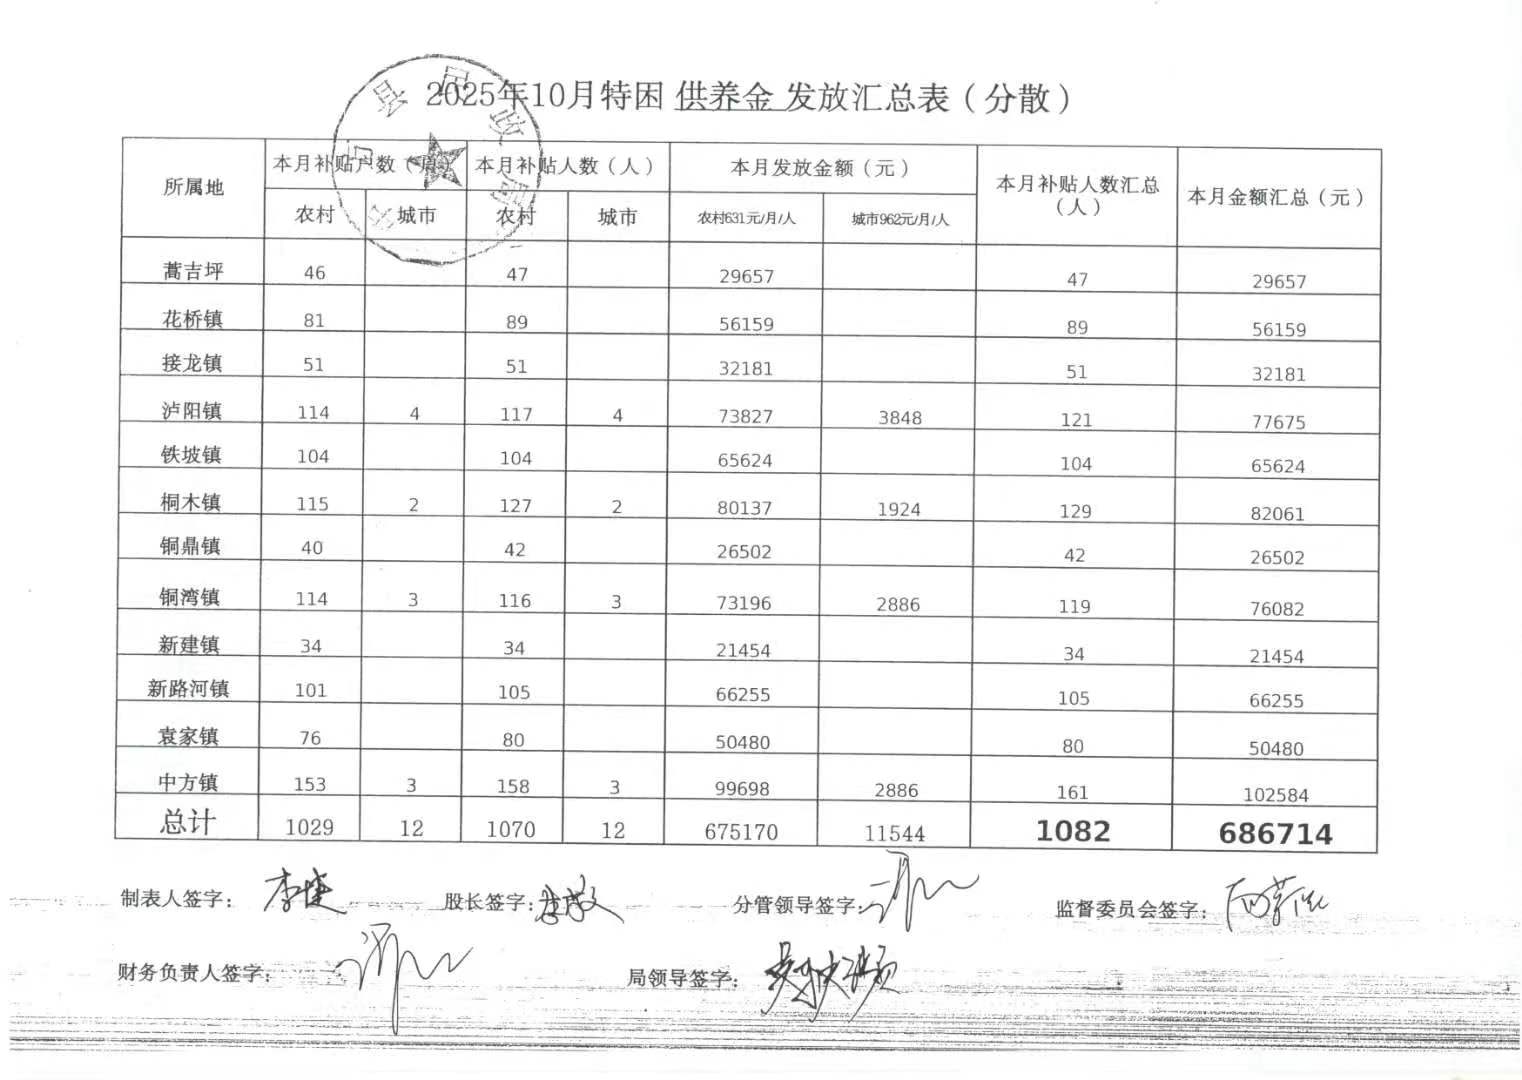 2025年10月特困 供养金 发放汇总表（分散）
所属地 本月补贴户数（户） 本月补贴人数（人） 本月发放金额（元） 本月补贴人数汇总（人） 本月金额汇总（元）
农村 城市 农村 城市 农村631元/月/人 城市962元/月/人
蒿吉坪 46 47 29657 47 29657
花桥镇 81 89 56159 89 56159
接龙镇 51 51 32181 51 32181
泸阳镇 114 4 117 4 73827 3848 121 77675
铁坡镇 104 104 65624 104 65624
桐木镇 115 2 127 2 80137 1924 129 82061
铜鼎镇 40 42 26502 42 26502
铜湾镇 114 3 116 3 73196 2886 119 76082
新建镇 34 34 21454 34 21454
新路河镇 101 105 66255 105 66255
袁家镇 76 80 50480 80 50480
中方镇 153 3 158 3 99698 2886 161 102584
总计 1029 12 1070 12 675170 11544 1082 686714
制表人签字： 李健 股长签字： 分管领导签字： 监督委员会签字：
财务负责人签字： 局领导签字：
中方县民政局